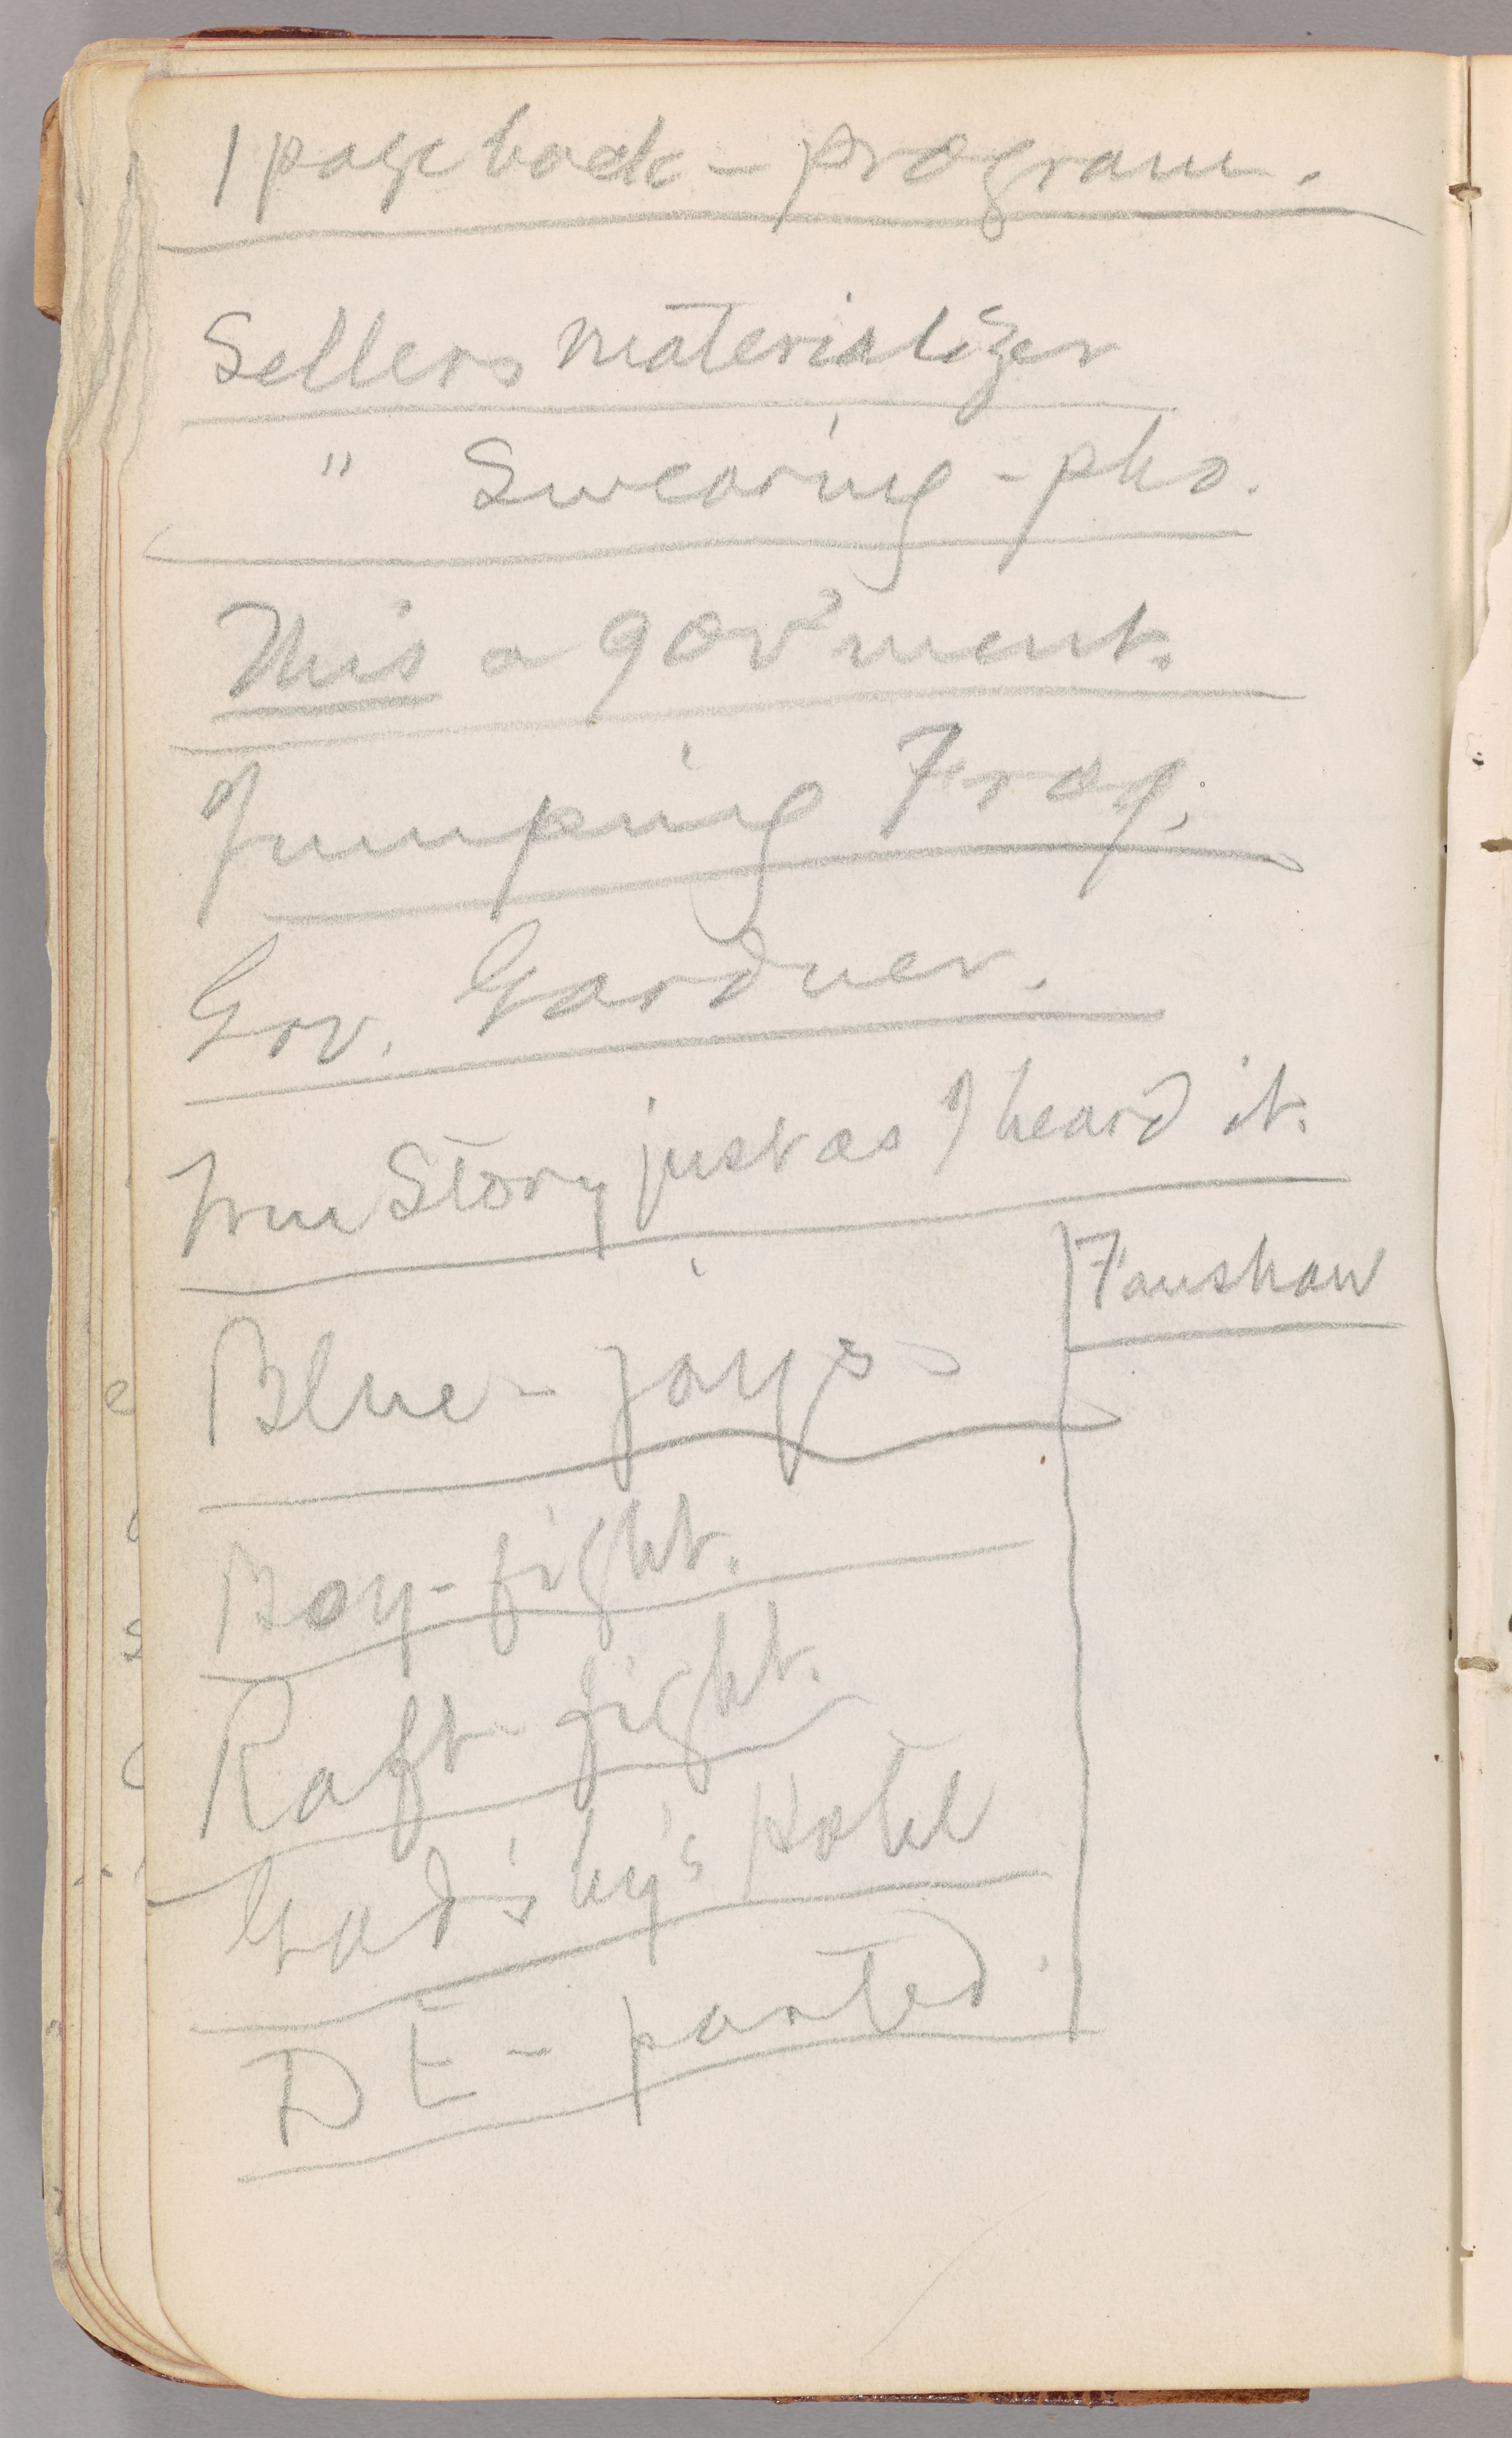 1 page back - program.
Sellers materializer
" Swearing - pho.
This a gov'ment.
Jumping Frog.
Gov. Gardner.
True Story just as I heard it.
Fanshaw
Blue-jays
Boy-fight.
Raft-fight.
Gadsby's Hotel
DE-parted